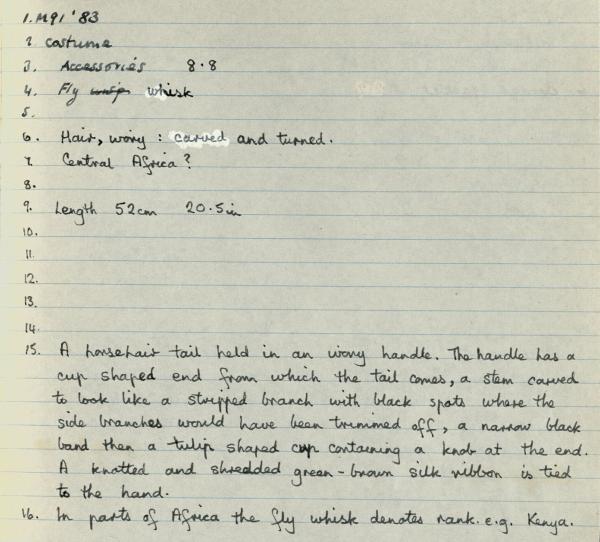 1. M91 '83
2. Costume
3. Accessories 8.8
4. Fly whisk
5.
6. Hair, ivory : carved and turned.
7. Central Africa ?
8.
9. Length 52cm 20.5in
10.
11.
12.
13.
14.
15. A horsehair tail held in an ivory handle. The handle has a
cup shaped end from which the tail comes, a stem carved
to look like a stripped branch with black spots where the
side branches would have been trimmed off, a narrow black
band then a tulip shaped cup containing a knob at the end.
A knotted and shredded green-brown silk ribbon is tied
to the hand.
16. In parts of Africa the fly whisk denotes rank. e.g. Kenya.